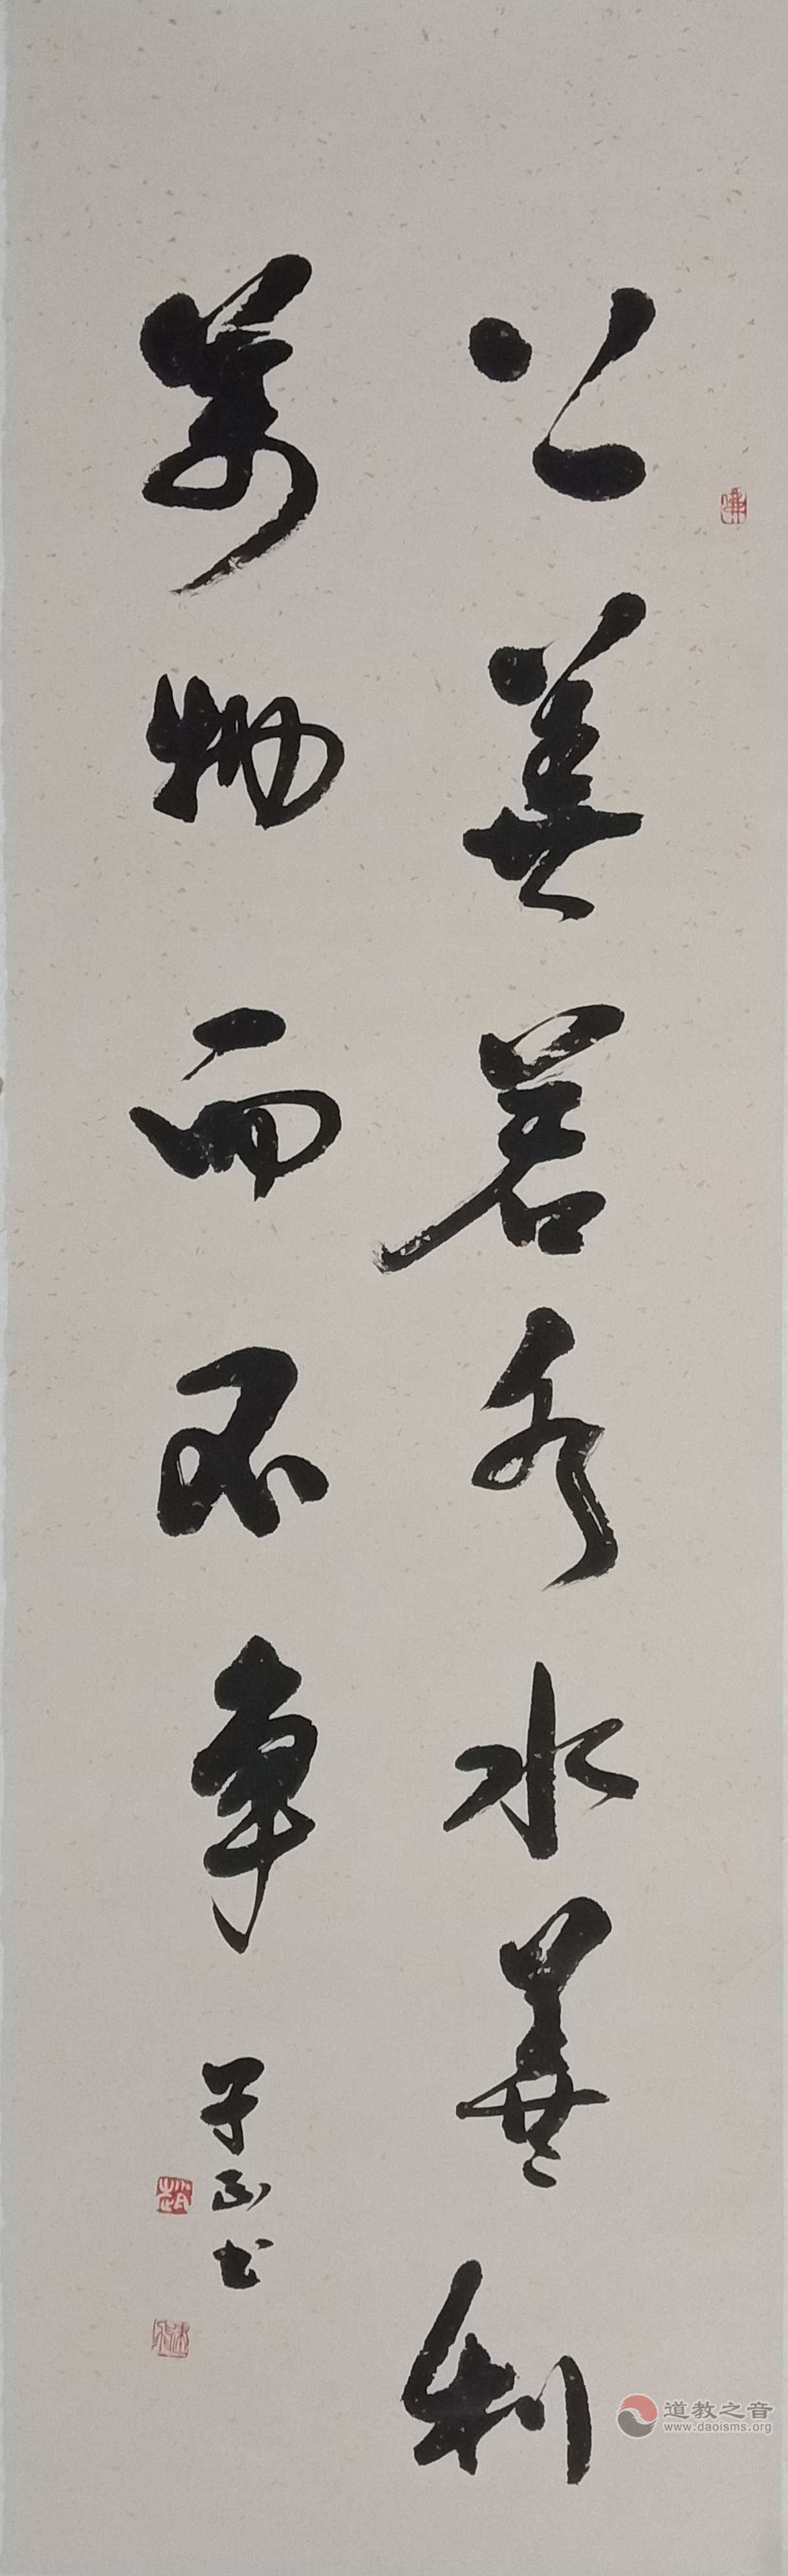 上善若水水善利
萬物而不爭
正书
道教之音
www.daoisms.org